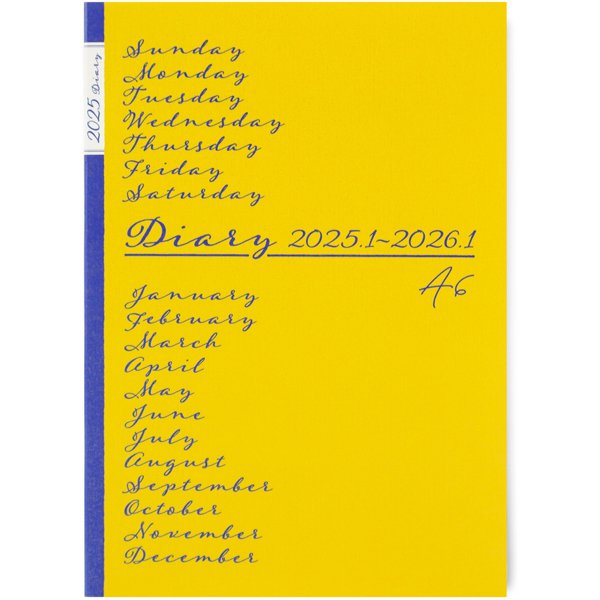 2025 Diary
Sunday
Monday
Tuesday
Wednesday
Thursday
Friday
Saturday
Diary 2025.1~2026.1
A6
January
February
March
April
May
June
July
August
September
October
November
December